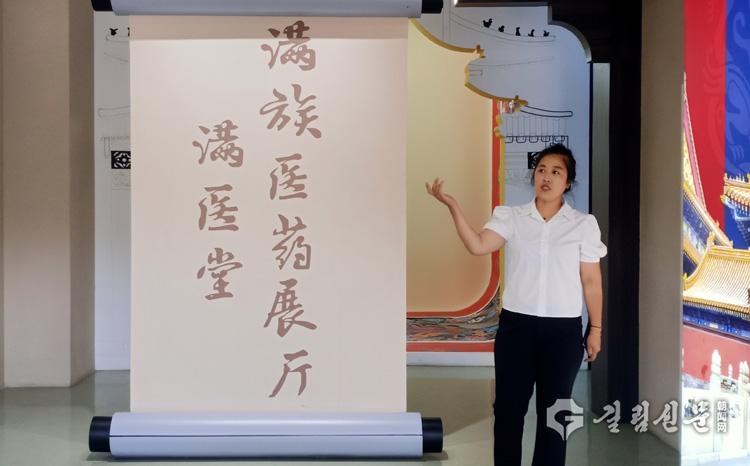 满族医药展厅
满医堂
길림신문
朝闻网